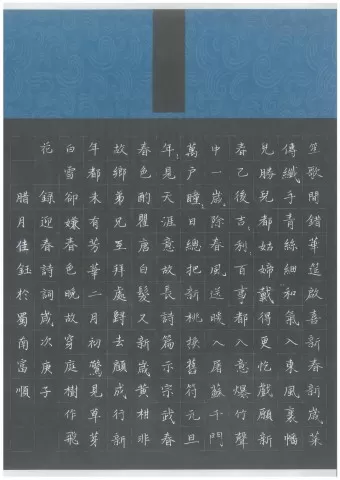 笙歌間錯華筵啟喜新春新歲菜
傳纖手青絲細和氣入東風裏幡
兒勝兒都姑婦戴得更忔戲願新
春已後吉利百事都如意爆竹聲
中一歲除春風送暖入屠蘇千門
萬戶曈曈日總把新桃換舊符元旦
年見天涯意故長詩篇示宗武春
春色酌瞿唐白髮又新歲黃柑非
故鄉弟兄互拜處歸去願成行新
年都未有芳華二月初驚見草芽
白雪卻嫌春色晚故穿庭樹作飛
花
錄迎春詩詞歲次庚子
臘月佳鈺於蜀南富順